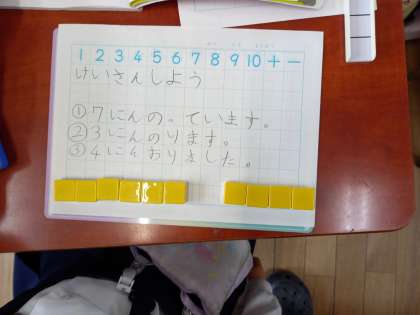 1 2 3 4 5 6 7 8 9 10 + −
けいさんしよう
① 7にんの。ています。
② 3にんのります。
③ 4にんおりました。